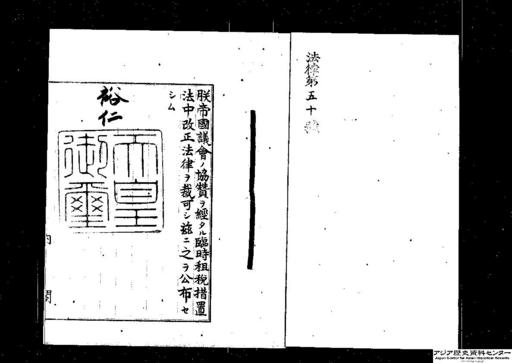 法律第五十號
朕帝國議會ノ協贊ヲ經タル臨時租税措置
法中改正法律ヲ裁可シ茲ニ之ヲ公布セ
シム
裕仁
天皇
御璽
内閣
アジア歴史資料センター
Japan Center for Asian Historical Records